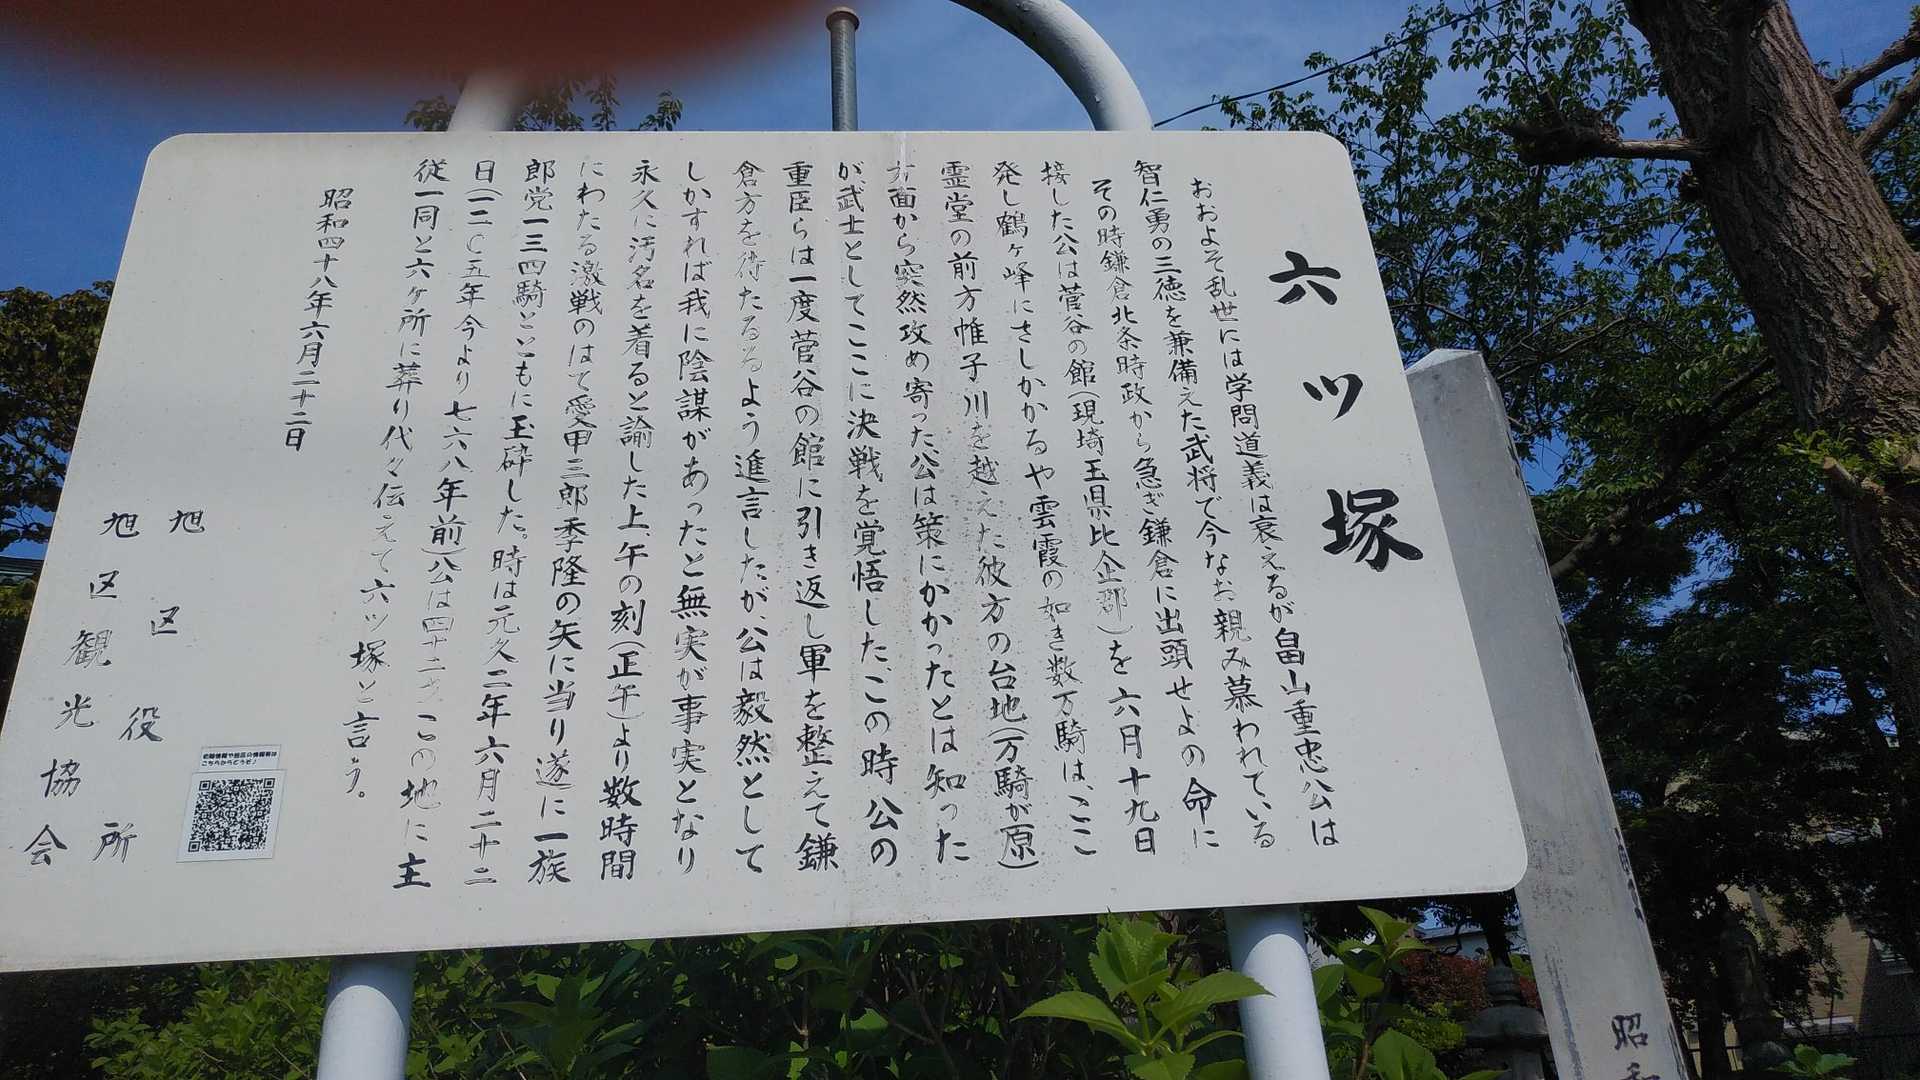 六ツ塚
おおよそ乱世には学問道義は衰えるが畠山重忠公は
智仁勇の三徳を兼備えた武将で今なお親み慕われている
その時鎌倉北条時政から急ぎ鎌倉に出頭せよの命に
接した公は菅谷の館(現埼玉県比企郡)を六月十九日
発し鶴ヶ峰にさしかかるや雲霞の如き数万騎は、ここ
霊堂の前方帷子川を越えた彼方の台地(万騎が原)
方面から突然攻め寄った、公は策にかかったとは知った
が武士としてここに決戦を覚悟した、この時公の
重臣らは一度菅谷の館に引き返し軍を整えて鎌
倉方を待たるるよう進言したが、公は毅然として
しかすれば我に陰謀があったと無実が事実となり
永久に汚名を着ると諭した上、午の刻(正午)より数時間
にわたる激戦のはて愛甲三郎季隆の矢に当り遂に一族
郎党一三四騎とともに玉砕した。時は元久二年六月二十二
日(一二〇五年今より七六八年前)公は四十二才この地に主
従一同と六ヶ所に葬り代々伝えて六ツ塚と言う。
昭和四十八年六月二十二日
旭区役所
旭区観光協会
こちらからどうぞ♪
昭和